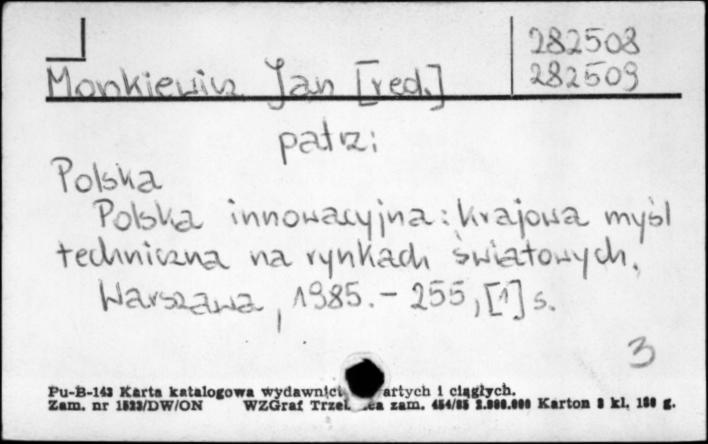 282508
Monkiewicz Jan [red.] 282509
patrz:
Polska
Polska innowacyjna: krajowa myśl
techniczna na rynkach światowych.
Warszawa, 1985. - 255, [1] s.
3
Pu-B-143 Karta katalogowa wydawnict artych i ciągłych.
Zam. nr 1523/DW/ON WZGraf zam. 454/85 2.000.000 Karton kl. g.